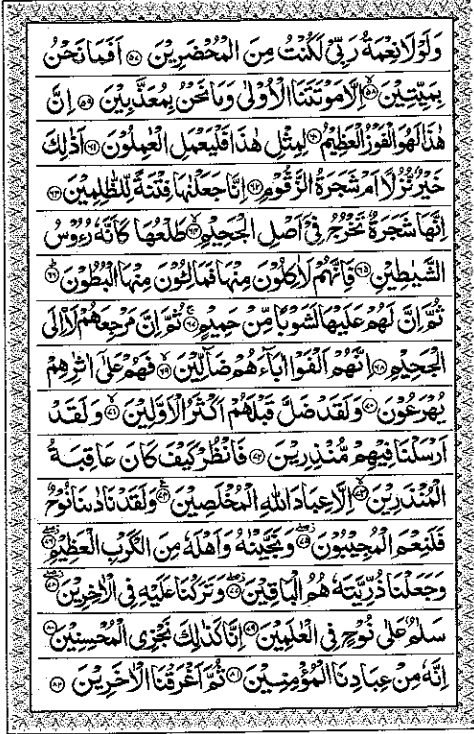 وَلَوْلَا نِعْمَةُ رَبِّيْ لَكُنْتُ مِنَ الْمُحْضَرِيْنَ ﴿۵۷﴾ اَفَمَا نَحْنُ
بِمَيِّتِيْنَ ﴿۵۸﴾ اِلَّا مَوْتَتَنَا الْاُوْلٰى وَمَا نَحْنُ بِمُعَذَّبِيْنَ ﴿۵۹﴾ اِنَّ
هٰذَا لَهُوَ الْفَوْزُ الْعَظِيْمُ ﴿۶۰﴾ لِمِثْلِ هٰذَا فَلْيَعْمَلِ الْعٰمِلُوْنَ ﴿۶۱﴾ اَذٰلِكَ
خَيْرٌ نُّزُلًا اَمْ شَجَرَةُ الزَّقُّوْمِ ﴿۶۲﴾ اِنَّا جَعَلْنٰهَا فِتْنَةً لِّلظّٰلِمِيْنَ ﴿۶۳﴾
اِنَّهَا شَجَرَةٌ تَخْرُجُ فِيْٓ اَصْلِ الْجَحِيْمِ ﴿۶۴﴾ طَلْعُهَا كَاَنَّهٗ رُءُوْسُ
الشَّيٰطِيْنِ ﴿۶۵﴾ فَاِنَّهُمْ لَاٰكِلُوْنَ مِنْهَا فَمَالِـُٔوْنَ مِنْهَا الْبُطُوْنَ ﴿۶۶﴾
ثُمَّ اِنَّ لَهُمْ عَلَيْهَا لَشَوْبًا مِّنْ حَمِيْمٍ ﴿۶۷﴾ ثُمَّ اِنَّ مَرْجِعَهُمْ لَا۟اِلَى
الْجَحِيْمِ ﴿۶۸﴾ اِنَّهُمْ اَلْفَوْا اٰبَآءَهُمْ ضَآلِّيْنَ ﴿۶۹﴾ فَهُمْ عَلٰٓى اٰثٰرِهِمْ
يُهْرَعُوْنَ ﴿۷۰﴾ وَلَقَدْ ضَلَّ قَبْلَهُمْ اَكْثَرُ الْاَوَّلِيْنَ ﴿۷۱﴾ وَلَقَدْ
اَرْسَلْنَا فِيْهِمْ مُّنْذِرِيْنَ ﴿۷۲﴾ فَانْظُرْ كَيْفَ كَانَ عَاقِبَةُ
الْمُنْذَرِيْنَ ﴿۷۳﴾ اِلَّا عِبَادَ اللّٰهِ الْمُخْلَصِيْنَ ﴿۷۴﴾ وَلَقَدْ نَادٰىنَا نُوْحٌ
فَلَنِعْمَ الْمُجِيْبُوْنَ ﴿۷۵﴾ وَنَجَّيْنٰهُ وَاَهْلَهٗ مِنَ الْكَرْبِ الْعَظِيْمِ ﴿۷۶﴾
وَجَعَلْنَا ذُرِّيَّتَهٗ هُمُ الْبٰقِيْنَ ﴿۷۷﴾ وَتَرَكْنَا عَلَيْهِ فِى الْاٰخِرِيْنَ ﴿۷۸﴾
سَلٰمٌ عَلٰى نُوْحٍ فِى الْعٰلَمِيْنَ ﴿۷۹﴾ اِنَّا كَذٰلِكَ نَجْزِى الْمُحْسِنِيْنَ ﴿۸۰﴾
اِنَّهٗ مِنْ عِبَادِنَا الْمُؤْمِنِيْنَ ﴿۸۱﴾ ثُمَّ اَغْرَقْنَا الْاٰخَرِيْنَ ﴿۸۲﴾